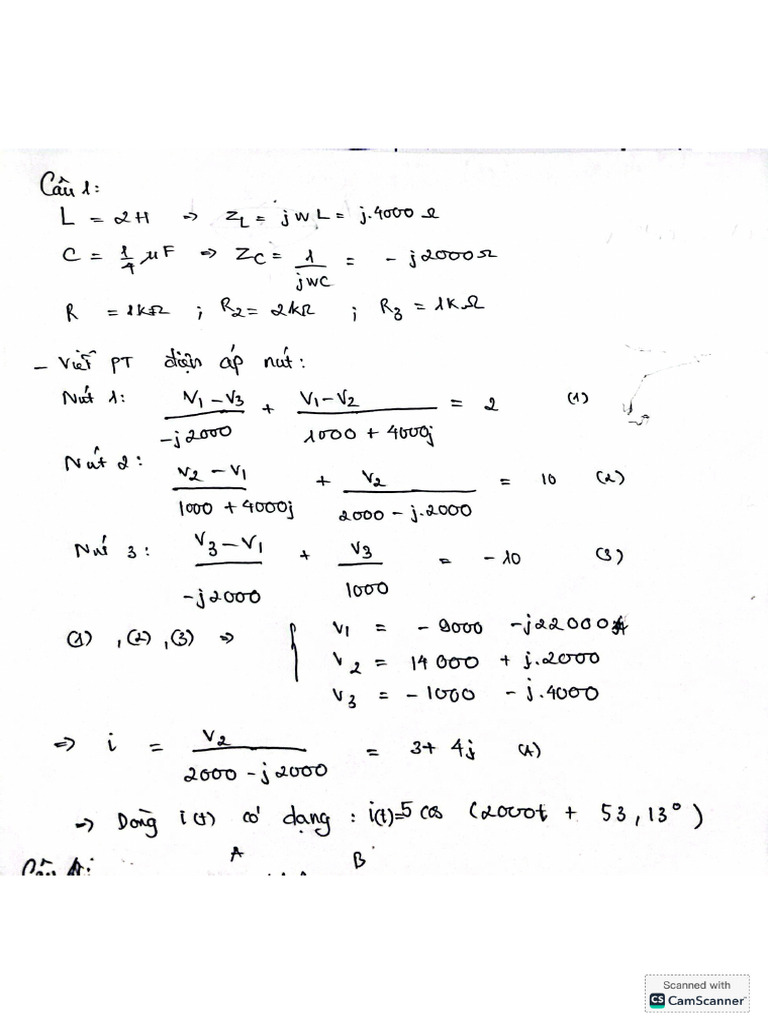 Câu 1:
L = 2H => Z_L = jwL = j.4000 Ω
C = 1/4 μF => Z_C = 1/jwC = -j2000Ω
R = 1kΩ ; R_2 = 2kΩ ; R_3 = 1kΩ
- Viết PT điện áp nút:
Nút 1: (V_1 - V_3)/(-j2000) + (V_1 - V_2)/(1000 + 4000j) = 2 (1)
Nút 2: (V_2 - V_1)/(1000 + 4000j) + V_2/(2000 - j.2000) = 10 (2)
Nút 3: (V_3 - V_1)/(-j2000) + V_3/1000 = -10 (3)
(1), (2), (3) => { V_1 = -9000 - j22000
V_2 = 14000 + j.2000
V_3 = -1000 - j.4000
=> i = V_2/(2000 - j2000) = 3 + 4j (A)
=> Dòng i(t) có dạng : i(t)=5 cos (2000t + 53,13°)
A B
Scanned with
CS CamScanner